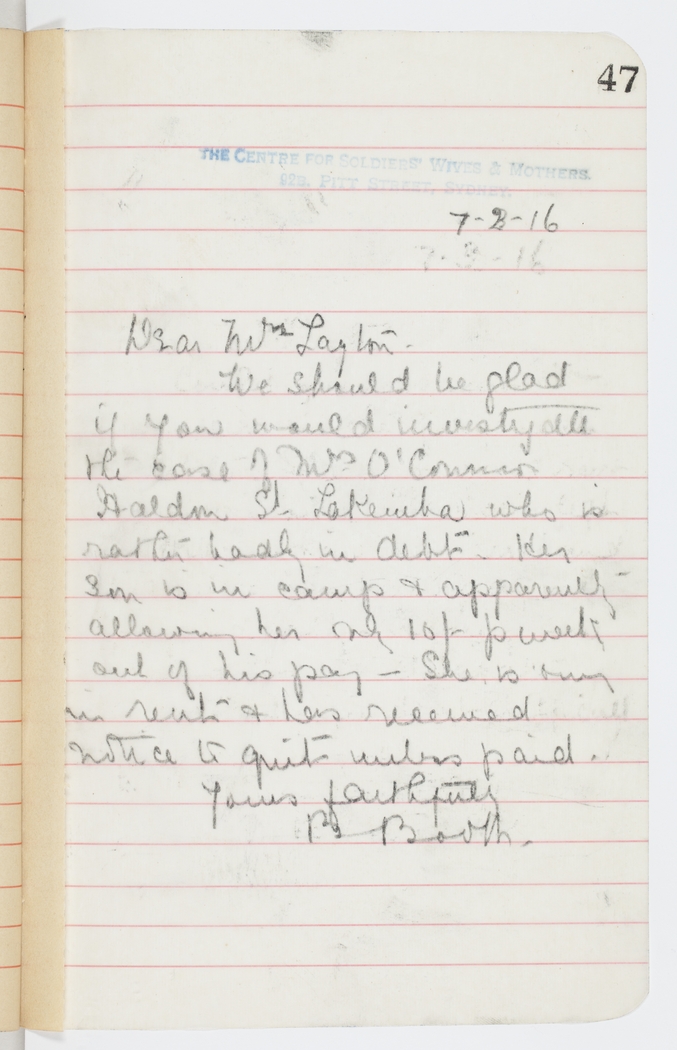 47
THE CENTRE FOR SOLDIERS' WIVES & MOTHERS.
PITT STREET, SYDNEY.
7-2-16
Dear Mrs Layton.
We should be glad
if you would investigate
the case of Mrs O'Connor
Haldon St Lakemba who is
rather badly in debt. Her
Son is in camp & apparently
allowing her only 10/- p week
out of his pay – She is owing
in rent & has received
notice to quit unless paid.
Yours faithfully
Booth.